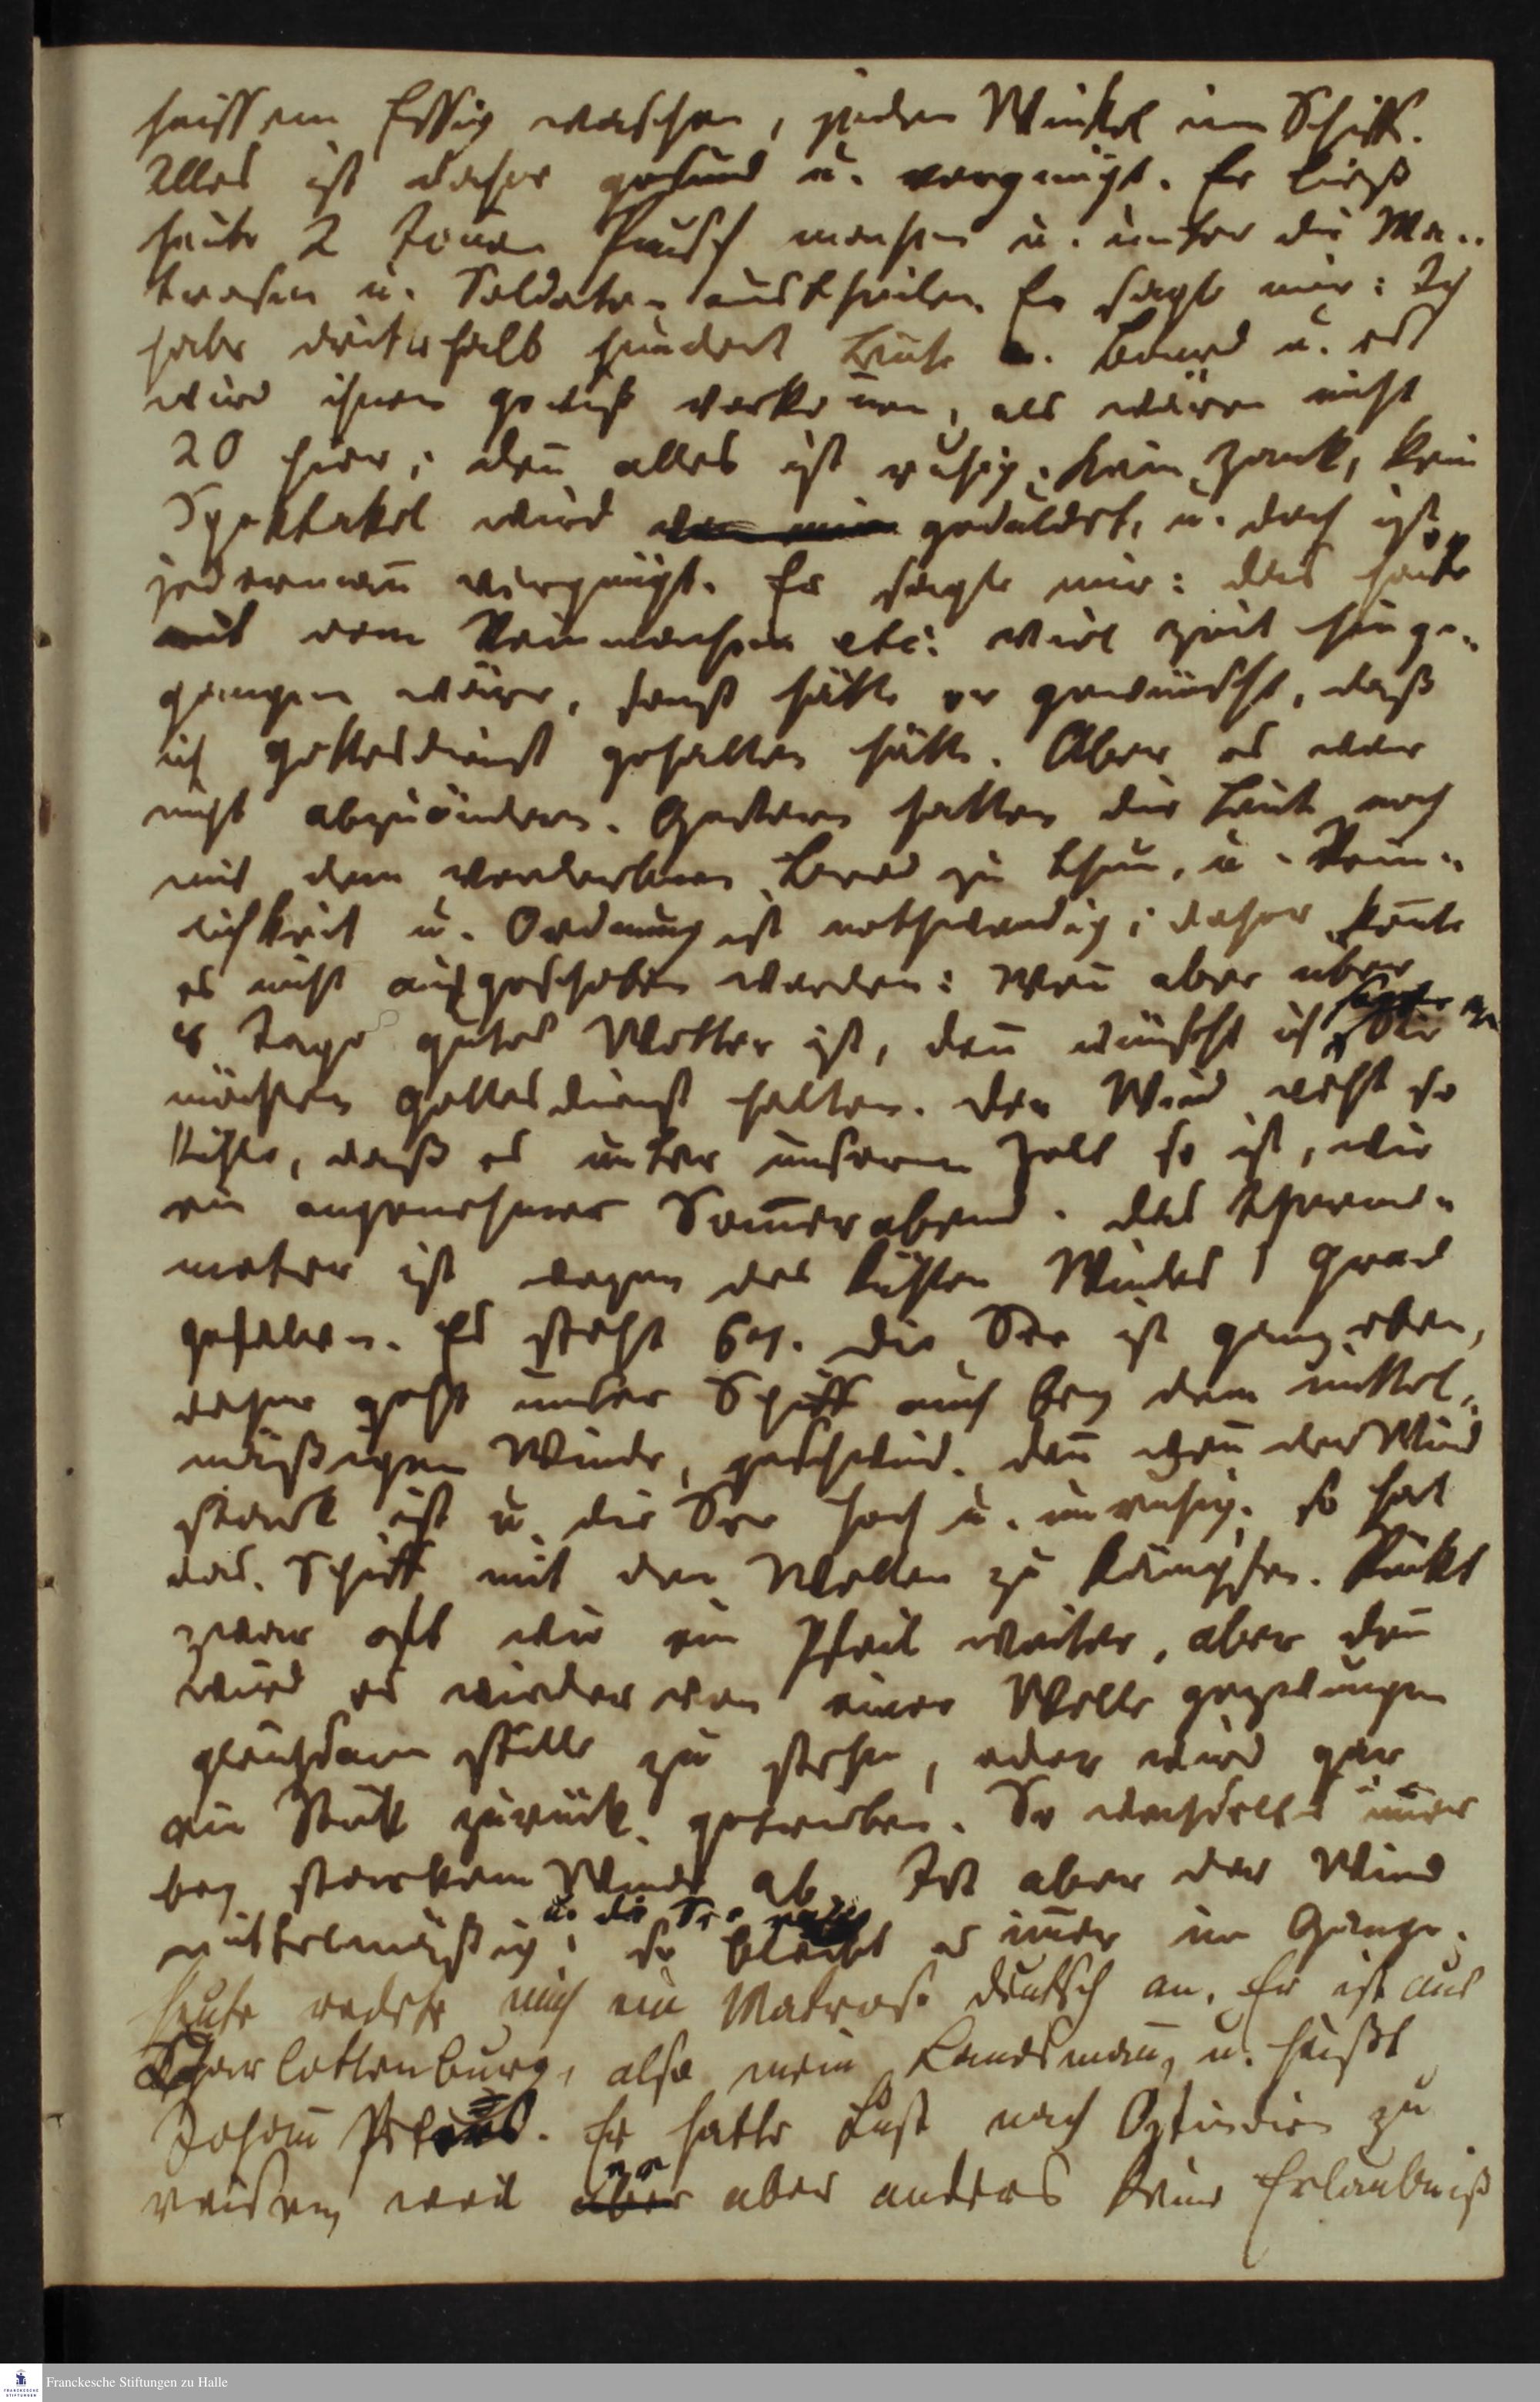 heissem Essig waschen, jeden Winkel im Schiff.
Alles ist daher gesund u. vergnügt. Er ließ
heute 2 Tonen Punsch machen u. unter die Ma-
trosen u. Soldaten austheilen. Er sagte mir: Ich
habe dritthalb hundert Leute a. Bourd u. es
wird ihnen gewiß vorkomen, als wären nicht
20 hier; den alles ist ruhig. Kein Zank, kein
Spektakel wird geduldet, u. doch ist
jederman vergnügt. Er sagte mir: das heute
mit dem Reinmachen etc: viel Zeit hinge-
gangen wäre, sonst hätte er gewünscht, daß
ich Gottesdienst gehalten hätte. Aber es war
nicht abzuändern. Gestern hatten die Leute noch
mit dem verdorbenen Brod zu thun, u. Rein-
lichkeit u. Ordnung ist nothwendig; daher konte
es nicht aufgeschoben werden: Wen aber über
8 Tage gutes Wetter ist, den wünscht ich sagte er Sie
möchten Gottesdienst halten. Der Wind weht so
kühle, daß es unter unserm Zelt so ist, wie
ein angenehmer Somerabend. Das Thermo-
meter ist wegen des kühlen Windes 1 Grad
gefallen. Es steht 69. Die See ist ganz eben,
daher geht unser Schiff auch bey dem mittel-
mäßigen Winde, geschwind. Den wen der Wind
stark ist u. die See hoch u. unruhig; so hat
das Schiff mit den Wellen zu kämpfen. Rückt
zwar oft wie ein Pfeil weiter, aber den
wird es wieder von einer Welle gezwungen
gleichsam stille zu stehen, oder wird gar
ein Stück zurück getrieben. So wechselts imer
bey starkem Winde ab. Ist aber der Wind
mittelmäßig u. die See ruhig; so bleibt es imer im Gange.
Heute redete mich ein Matrose deutsch an. Er ist aus
Charlottenburg, also mein Landsman, u. heißt
Johan. Er hatte Lust nach Ostindien zu
reisen, weil er aber anders keine Erlaubniß
Franckesche Stiftungen zu Halle